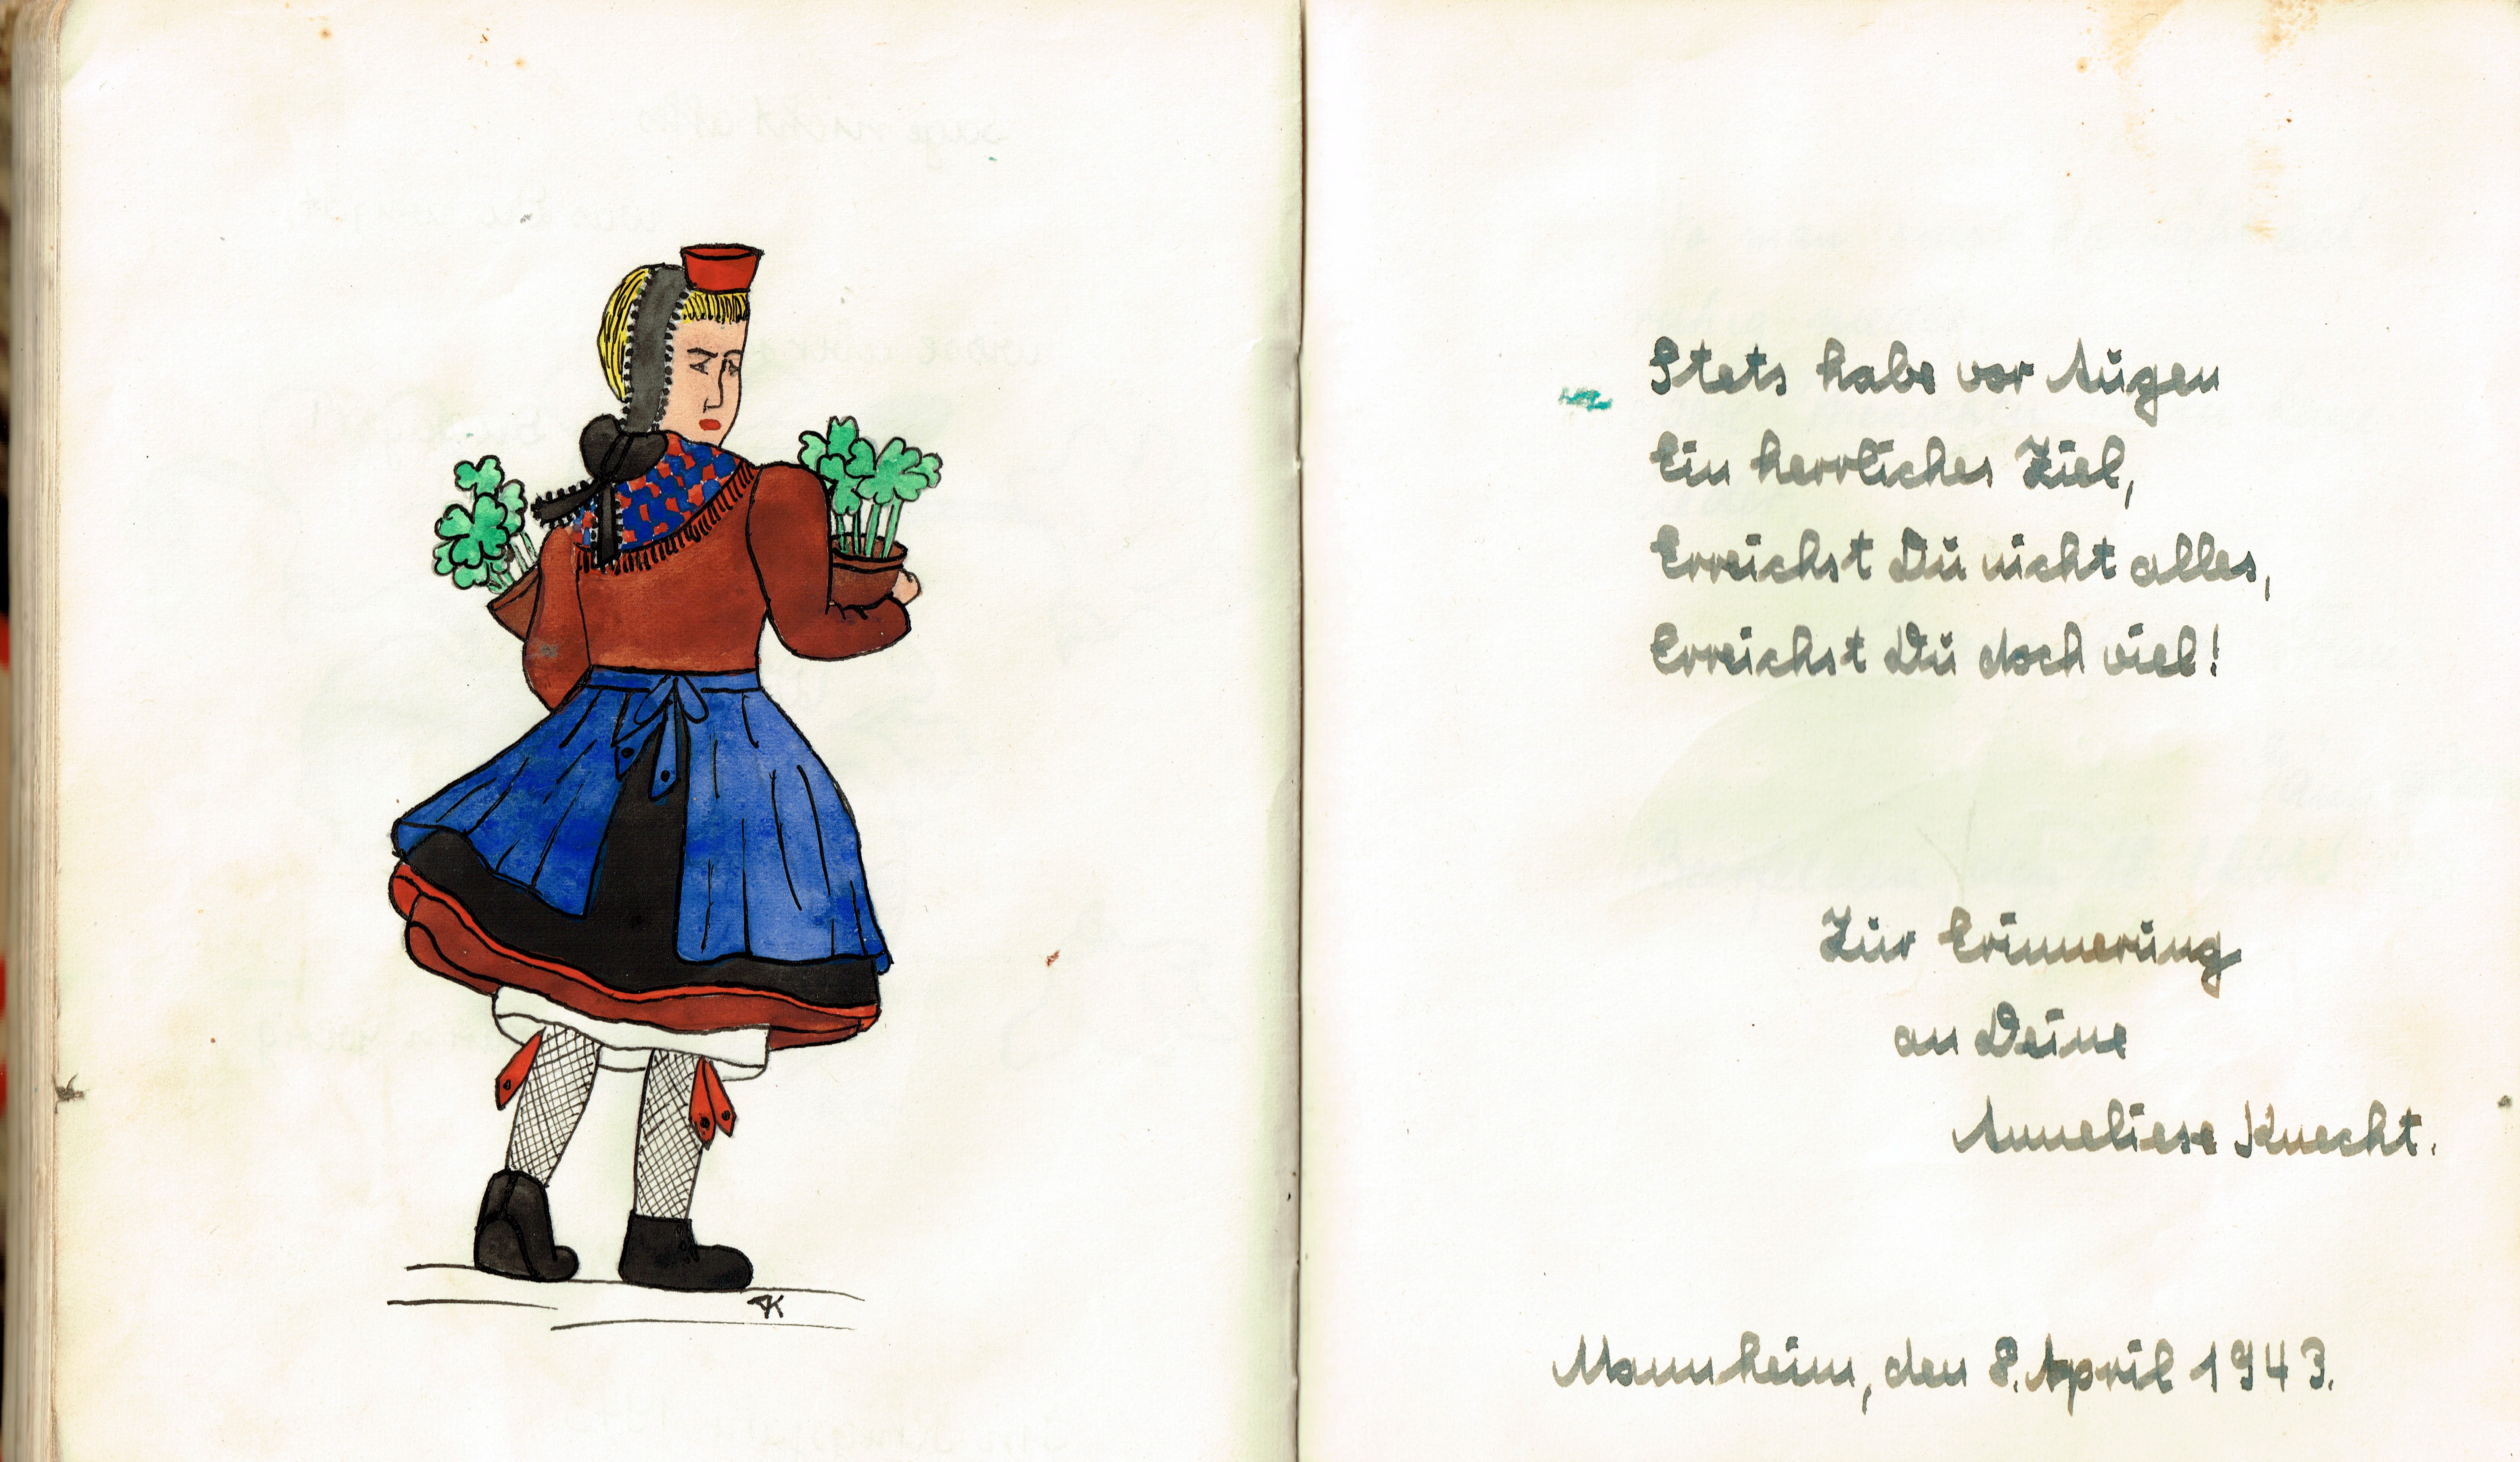 AK
Stets habe vor Augen
Ein herrliches Ziel,
Erreichst Du nicht alles,
Erreichst Du doch viel!
Zur Erinnerung
an Deine
Anneliese Knecht.
Mannheim, den 8. April 1943.